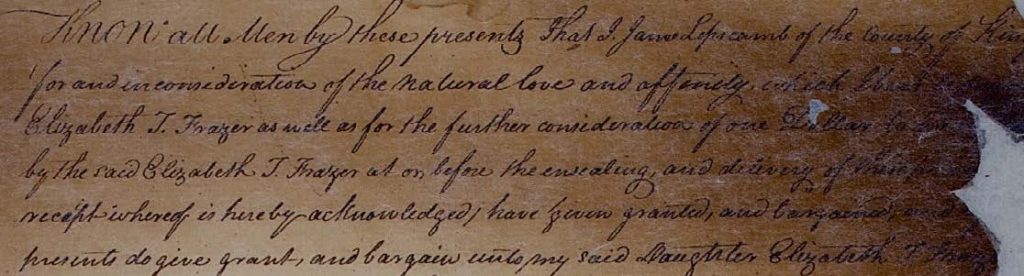 Know all Men by these presents That I Jane Lipscomb of the County of King
for and inconsideration of the natural love and affinity, which I bear
Elizabeth T. Frazer as well as for the further consideration of one Dollar to
by the said Elizabeth T. Frazer at or before the ensealing, and delivery of these
receipt whereof is hereby acknowledged, have given granted, and bargained, and
presents do give grant, and bargain unto, my said Daughter Elizabeth T Frazer